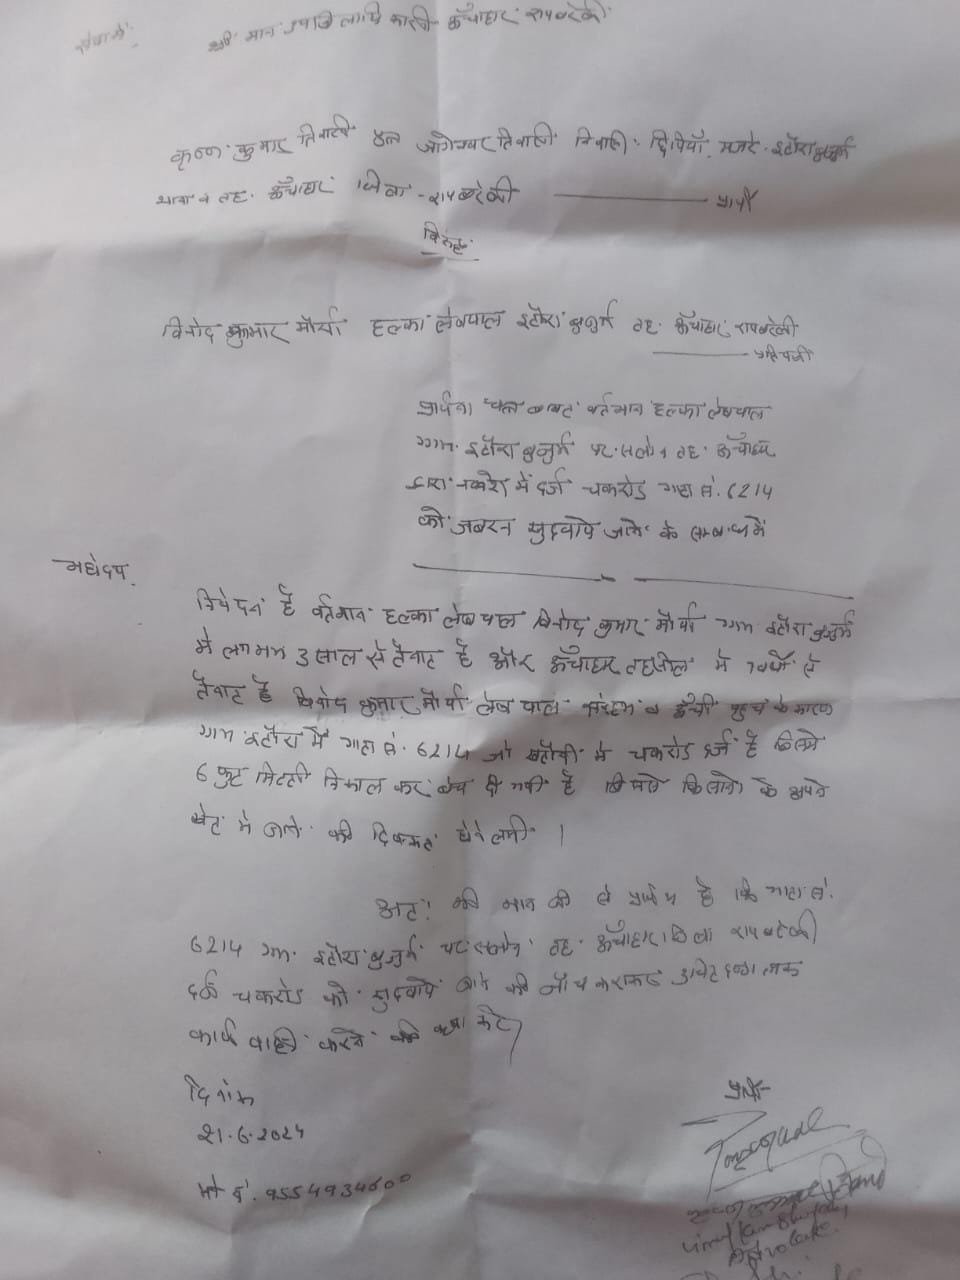 सेवामें
श्री मान उपजिलाधिकारी ऊँचाहार रायबरेली
कृष्ण कुमार तिवारी जागेश्वर तिवारी निवासी मजरे इटौरा बुजुर्ग
थाना व तह. ऊँचाहार जिला - रायबरेली ——— प्रार्थी
विरुद्ध
विनोद कुमार मौर्या हल्का लेखपाल इटौरा बुजुर्ग तह. ऊँचाहार रायबरेली
——— प्रतिपक्षी
प्रार्थना पत्र बावत वर्तमान हल्का लेखपाल
ग्राम इटौरा बुजुर्ग पर. सलोन तह. ऊँचाहार
द्वारा नक्शे में दर्ज चकरोड गाटा सं. 6214
को जबरन खुदवाये जाने के सम्बन्ध में
महोदय,
निवेदन है वर्तमान हल्का लेखपाल विनोद कुमार मौर्या ग्राम इटौरा बुजुर्ग
में लगभग 3 साल से तैनात है और ऊँचाहार तहसील में वर्षों से
तैनात है विनोद कुमार मौर्या लेखपाल व ऊँची पहुच के कारण
ग्राम इटौरा में गाटा सं. 6214 जो खतौनी में चकरोड दर्ज है जिसमे
6 फुट मिट्टी निकाल कर बेच दी गयी है जिससे किसानो के अपने
खेत मे जाने की दिक्कत होने लगी ।
अतः श्री मान जी से प्रार्थना है कि गाटा सं.
6214 ग्राम इटौरा बुजुर्ग पर. सलोन तह. ऊँचाहार जिला रायबरेली
दर्ज चकरोड को खुदवाये जाने की जाँच कराकर उचित दण्डात्मक
कार्यवाही करने की कृपा करें
दिनांक
21.6.2024
मो नं. 9554934600
प्रार्थी
Advocate